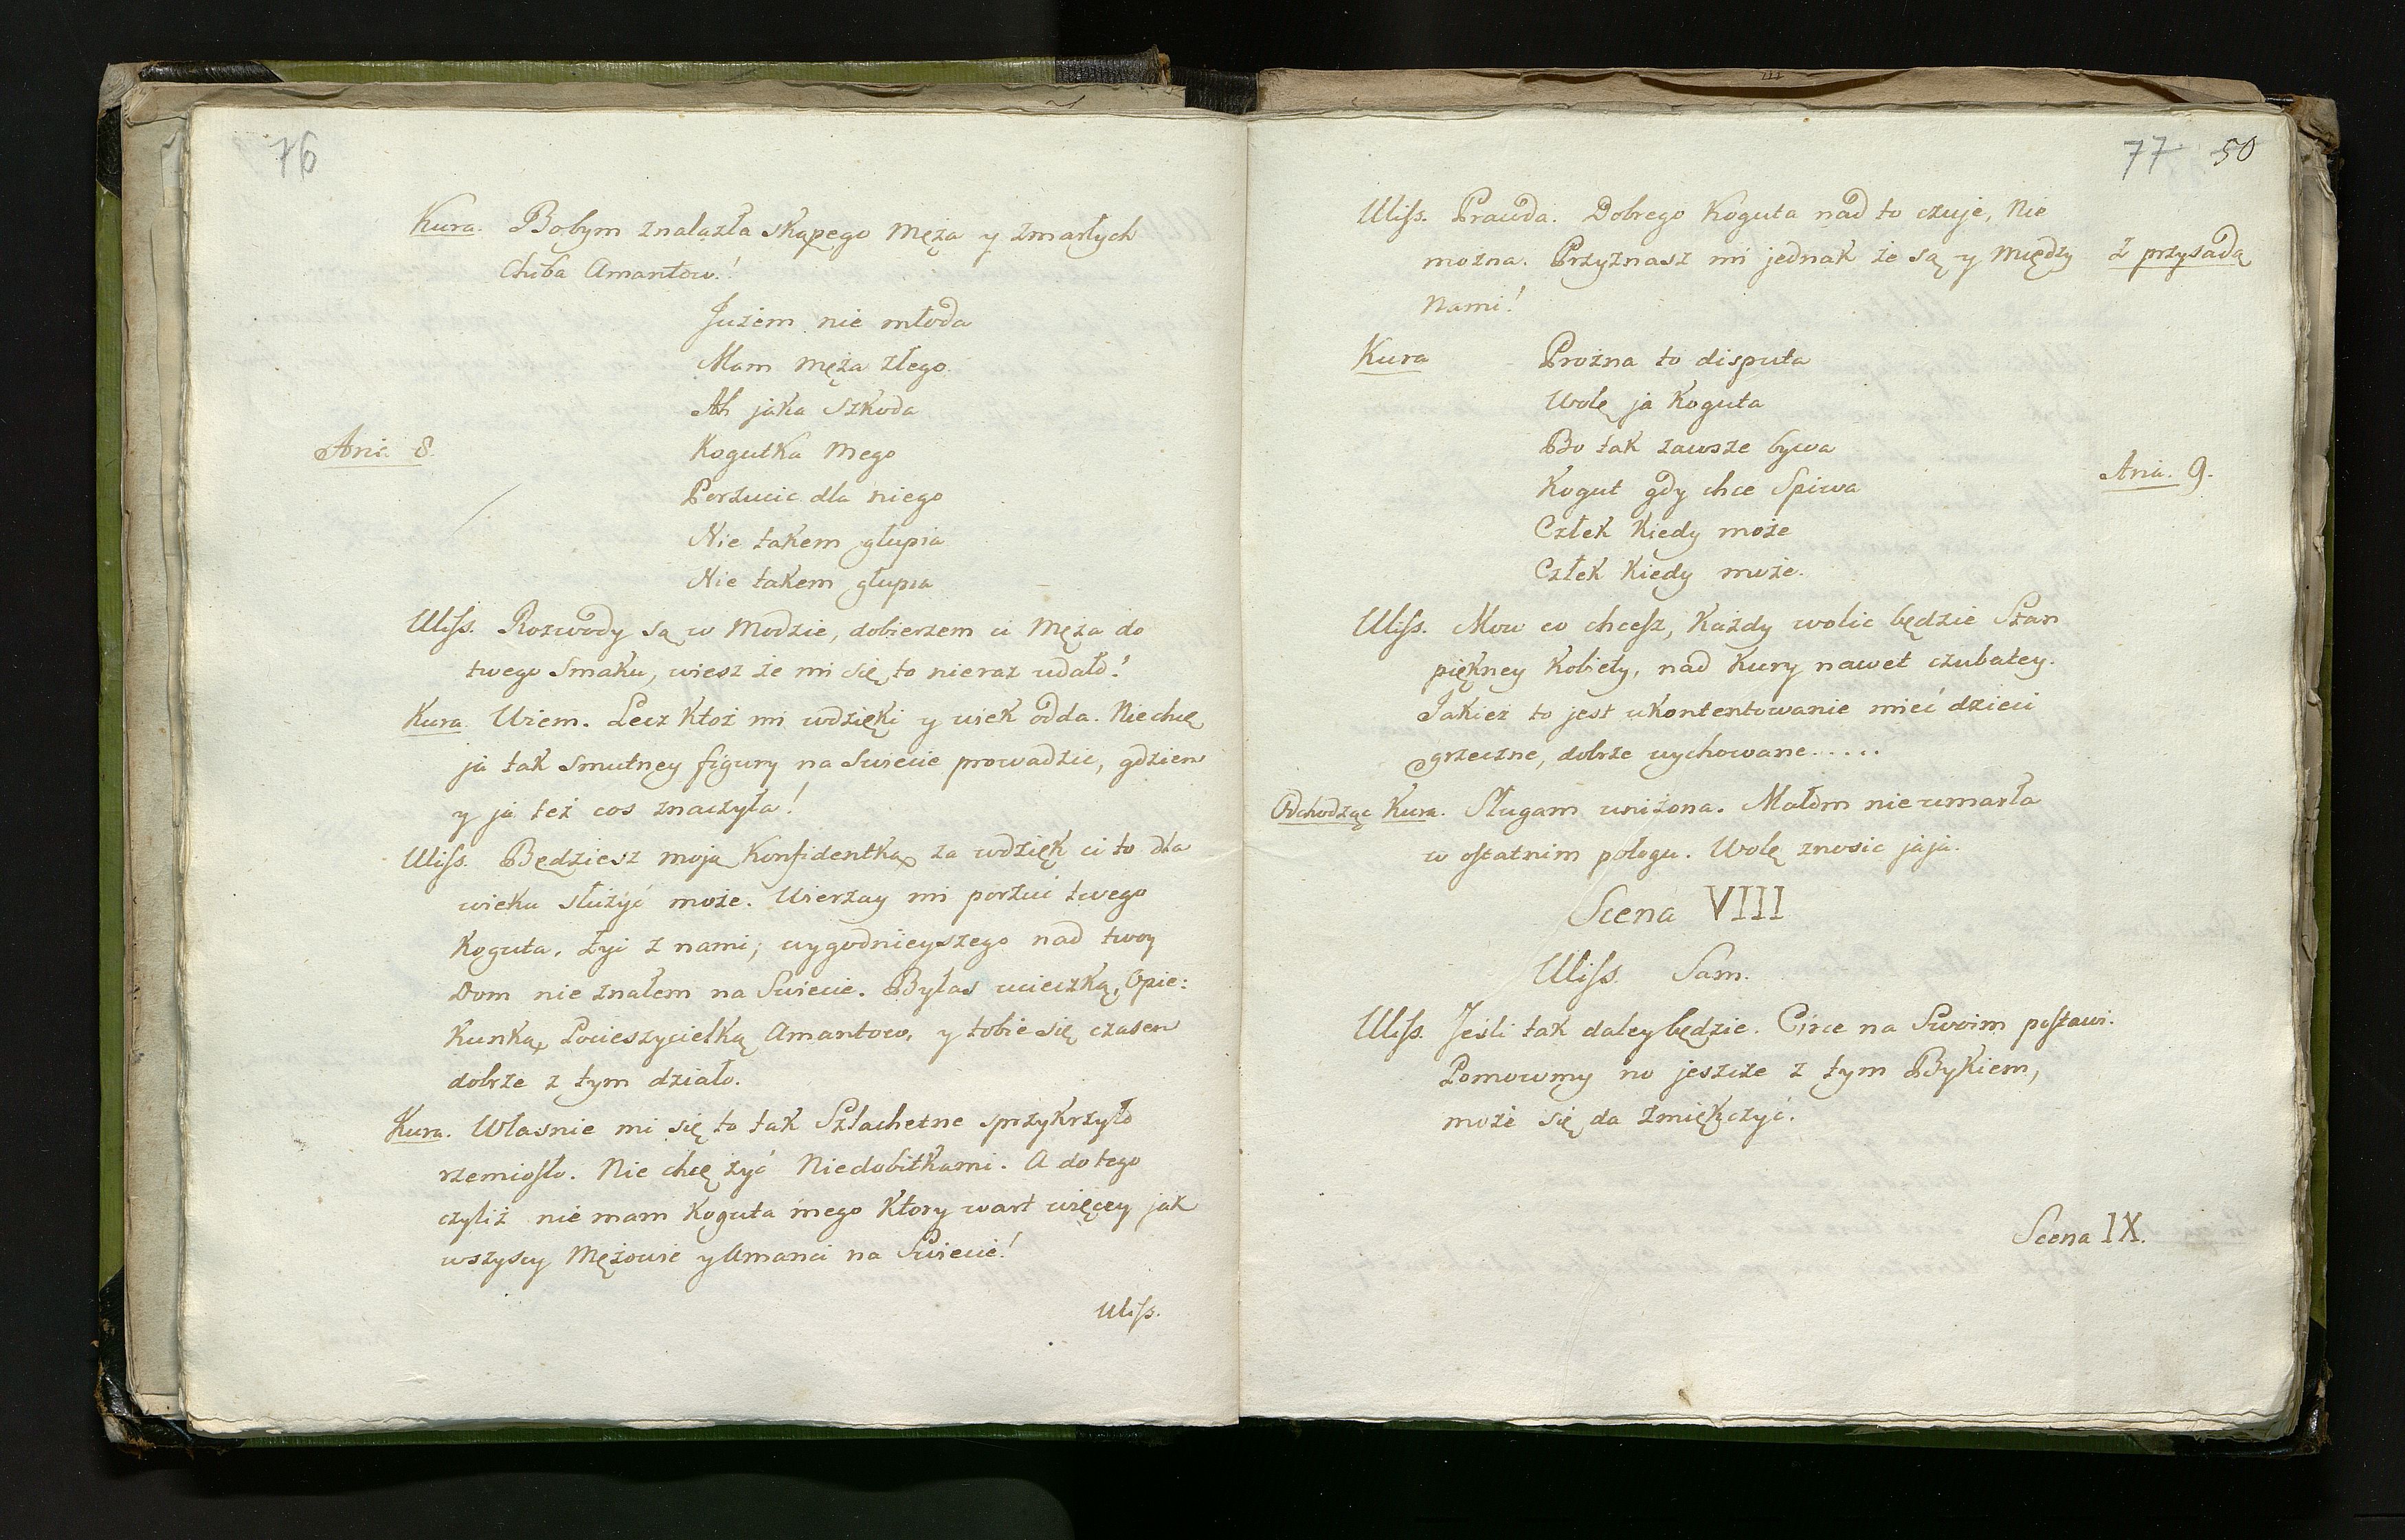 76
Kura. Bobym znalazła skąpego Męża y zmarłych
Chiba Amantow!
Jużem nie młoda
Mam Męża złego
Ah jaka szkoda
Aria 8.
Kogutka Mego
Porzucic dla niego
Nie takem głupia
Nie takem głupia
Uliss. Rozwody są w Modzie, dobierzem ci Męża do
twego Smaku, wiesz że mi się to nieraz udało!
Kura Wiem. Lecz ktoż mi wdzięki y wiek odda. Niechcę
ja tak Smutney figury na Swiecie prowadzic, gdziem
y ja też cos znaczyła!
Uliss. Będziesz moją Konfidentką, za wdzięk ci to dla
wieku służyć może. Wierzay mi porzuć twego
Koguta. Żyi z nami; wygodnieyszego nad twoy
Dom nie znałem na Swiecie. Byłas ucieczką, Opie:
Kunką, Pocieszycielką Amantow, y tobie się czasem
dobrze z tym działo.
Kura. Własnie mi się to tak Szlachetne sprzykrzyło
rzemiosło. Nie chcę żyć Niedobitkami. A do tego
czyliż nie mam Koguta mego Ktory wart więcey jak
wszyscy Mężowie y Amanci na Swiecie!
Uliss.
77 50
Uliss. Prawda. Dobrego Koguta nad to czuje, Nie
można. Przyznasz mi jednak że są y Między
z przysadą
Nami!
Kura Prożna to disputa
Wolę ja Koguta
Bo tak zawsze bywa
Kogut gdy chce Spiwa
Aria. 9.
Człek Kiedy może
Człek Kiedy może.
Uliss. Mow co chcesz, Każdy wolic będzie Stan
piękney Kobiety, nad Kury nawet czubatey.
Jakież to jest ukontentowanie mieć dzieci
grzeczne, dobrze wychowane.....
Odchodząc Kura. Sługam uniżona. Małom nie umarła
w ostatnim połogu. Wolę znosic jaja.
Scena VIII
Uliss. Sam.
Uliss. Jeśli tak daley będzie. Circe na Swoim postawi.
Pomowmy no jeszcze z tym Bykiem,
może się da Zmiękczyć.
Scena IX.